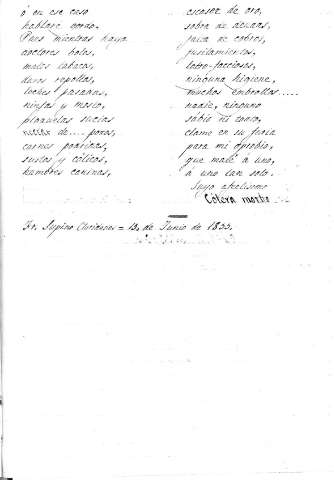 ó en ese caso
hablare gordo.
Pues mientras haya
doctores bolos,
malos tabacos,
duros repollos,
leches pasadas,
ninfas y mosto,
plazuelas sucias
de.... pozos,
carnes podridas,
sustos y cólicos,
hambres caninas,
escasez de oro,
sobra de deudas,
falta de cobres,
fusilamientos,
ninguna higiene,
muchos embrollos....
nadie, ninguno
sabio ni tonto,
clame en su furia
para mi oprobio,
que maté a uno,
á uno tan solo.
Suyo afmo
Cólera morbo
Fr. Supino Claridades = 13, de Junio de 1855.